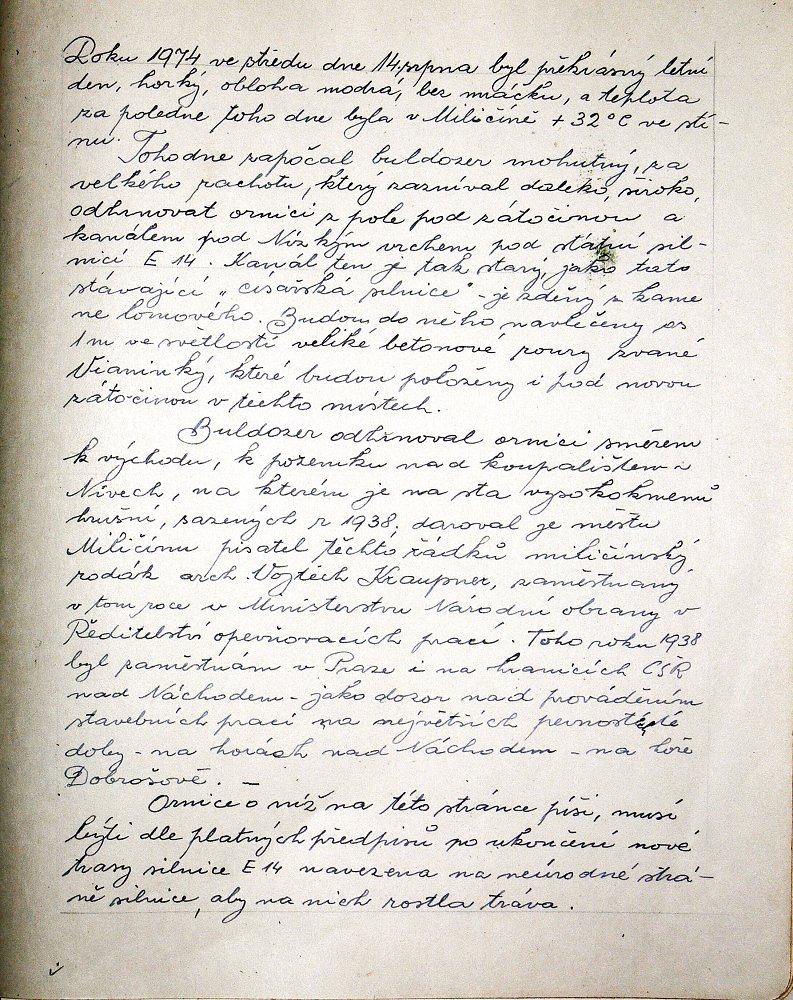 Roku 1974 ve středu dne 14. srpna byl překrásný letní
den, horký, obloha modrá, bez mráčku, a teplota
za poledne toho dne byla v Miličíně + 32°C ve stí-
nu.
Tohodne započal buldozer mohutný, za
velkého rachotu, který zazníval daleko, široko,
odhrnovat ornici z pole pod zátočinou a
kanálem pod Nízkým vrchem pod státní sil-
nicí E 14. Kanál ten je tak starý, jako tato
stávající "císařská silnice" - je zděný z kame
ne lomového. Budou do něho navlečeny as
1 m ve světlosti veliké betonové roury zvané
Vianinky, které budou položeny i pod novou
zátočinou v těchto místech.
Buldozer odhrnoval ornici směrem
k východu, k pozemku nad koupalištem v
Nivech, na kterém je na sta vysokokmenů
hrušní, sazených r. 1938. daroval je městu
Miličínu pisatel těchto řádků miličínský
rodák arch. Vojtěch Kraupner, zaměstnaný
v tom roce v Ministerstvu Národní obrany v
Ředitelství opevňovacích prací. Toho roku 1938
byl zaměstnám v Praze i na hranicích ČSR
nad Náchodem - jako dozor nad prováděním
stavebních prací na největších pevnost té
doby - na horách nad Náchodem - na hoře
Dobrošově. -
Ornice o níž na této stránce píši, musí
býti dle platných předpisů po ukončení nové
trasy silnice E 14 navezena na neúrodné strá-
ně silnice, aby na nich rostla tráva.